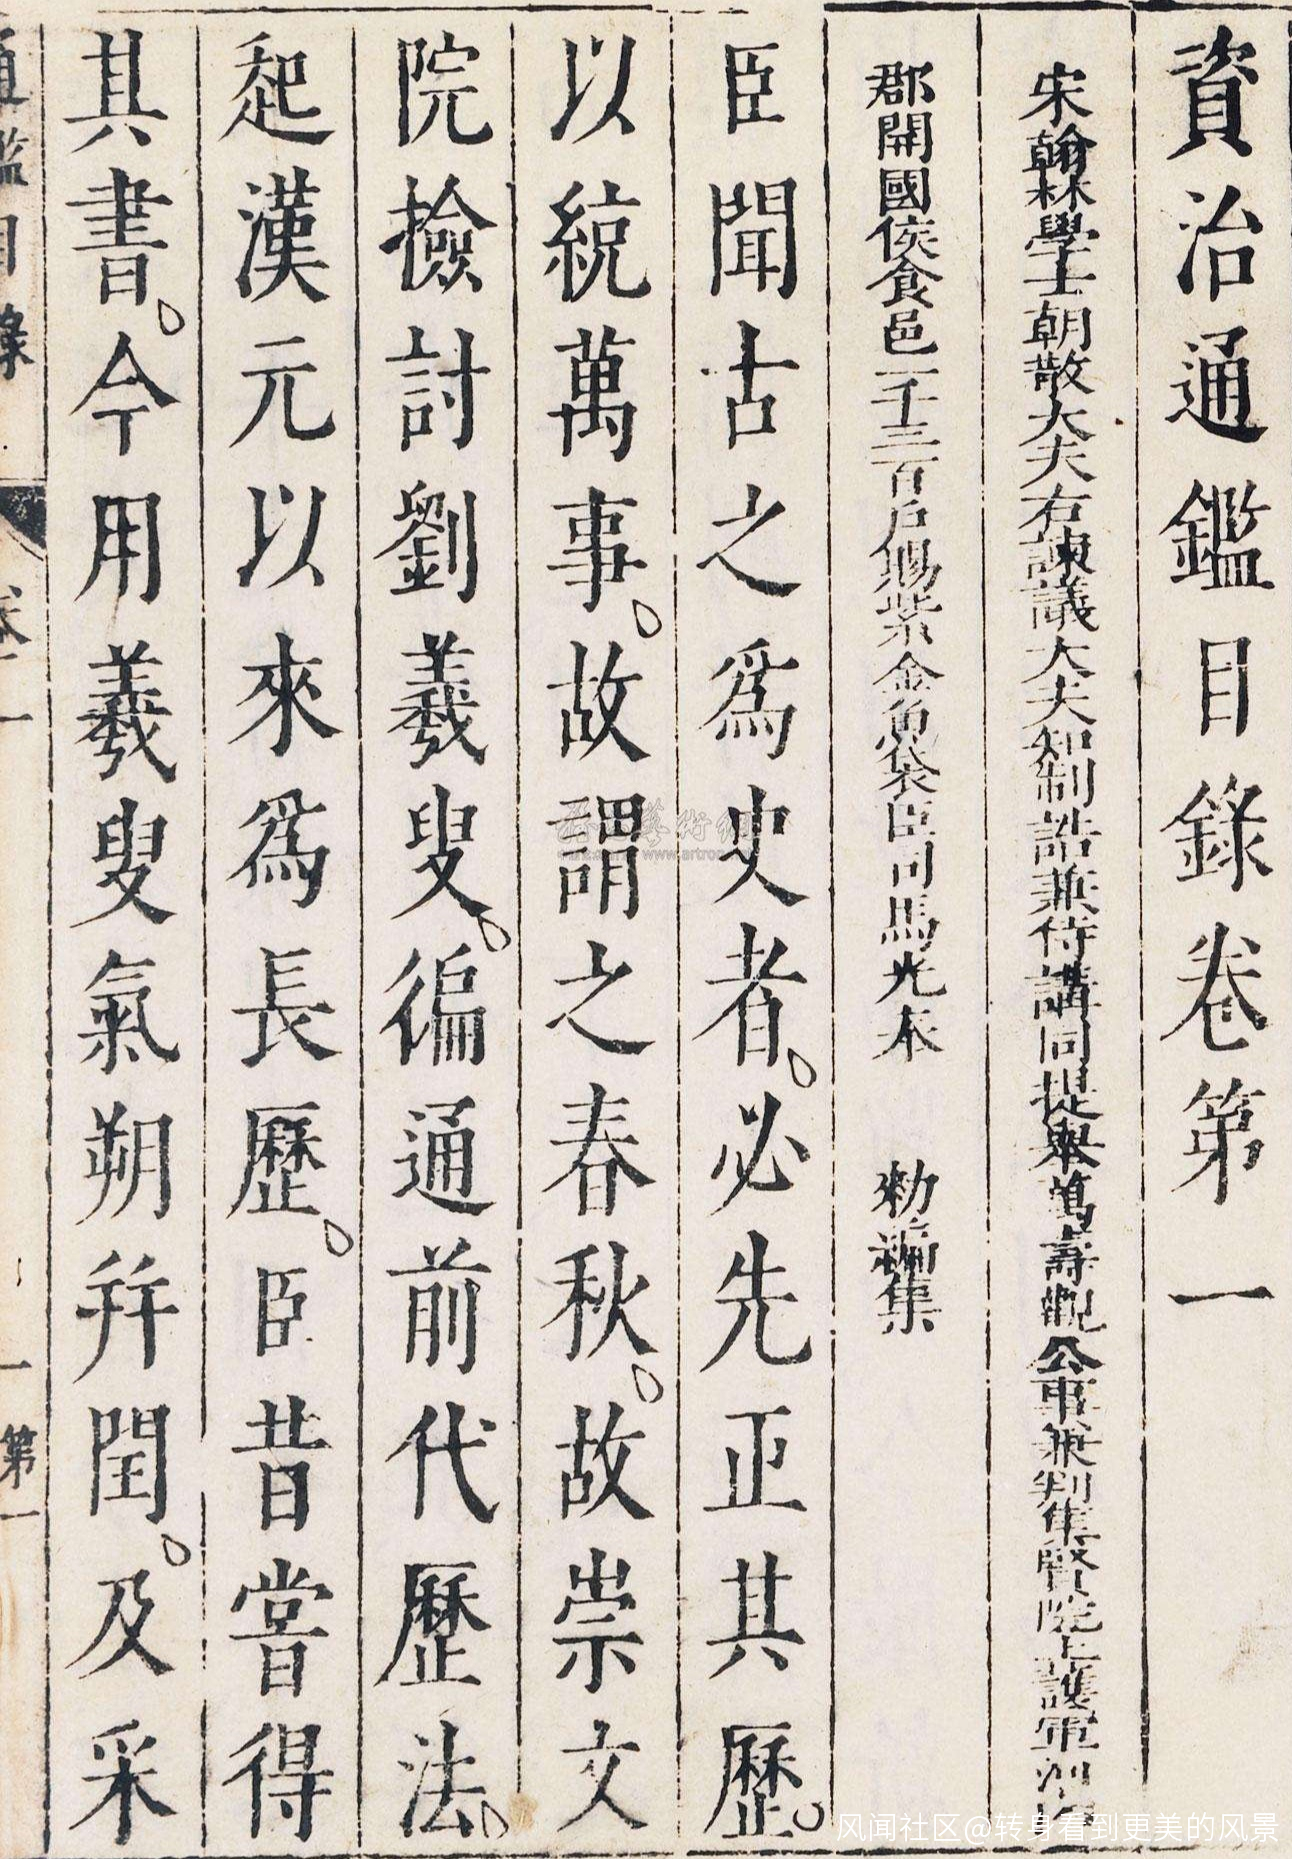 資治通鑑目錄卷第一
宋翰林學士朝散大夫右諫議大夫知制誥兼侍講同提舉萬壽觀公事兼判集賢院上護軍河內
郡開國侯食邑一千三百戶賜紫金魚袋臣司馬光奉 勅編集
臣聞古之爲史者。必先正其歷。
以統萬事。故謂之春秋。故崇文
院撿討劉羲叟。徧通前代歷法。
起漢元以來爲長歷。臣昔嘗得
其書。今用羲叟氣朔并閏。及采
通鑑目錄 卷一 一 第一
www.artron
风闻社区@转身看到更美的风景